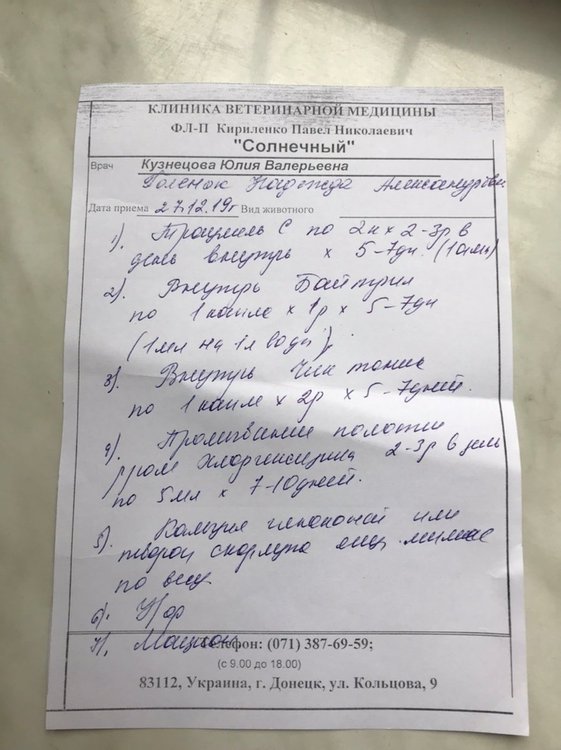 КЛИНИКА ВЕТЕРИНАРНОЙ МЕДИЦИНЫ
ФЛ-П Кириленко Павел Николаевич
"Солнечный"
Врач Кузнецова Юлия Валерьевна
Надежда Александровна
Дата приема 27.12.19г Вид животного
1). Траумель С по 2к х 2-3р в
день внутрь х 5-7дн. (1амп)
2). Внутрь Байтрил
по 1 капле х 1р х 5-7дн
(1мл на 1л воды);
3). Внутрь Чиктоник
по 1 капле х 2р х 5-7дней.
4). Промывание полости
рром Хлоргексидина 2-3р в день
по 5мл х 7-10дней.
5). Кальция глюконат или
скорлупа яиц
по весу
6). Уф
7). Моцион
Телефон: (071) 387-69-59;
(с 9.00 до 18.00)
83112, Украина, г. Донецк, ул. Кольцова, 9